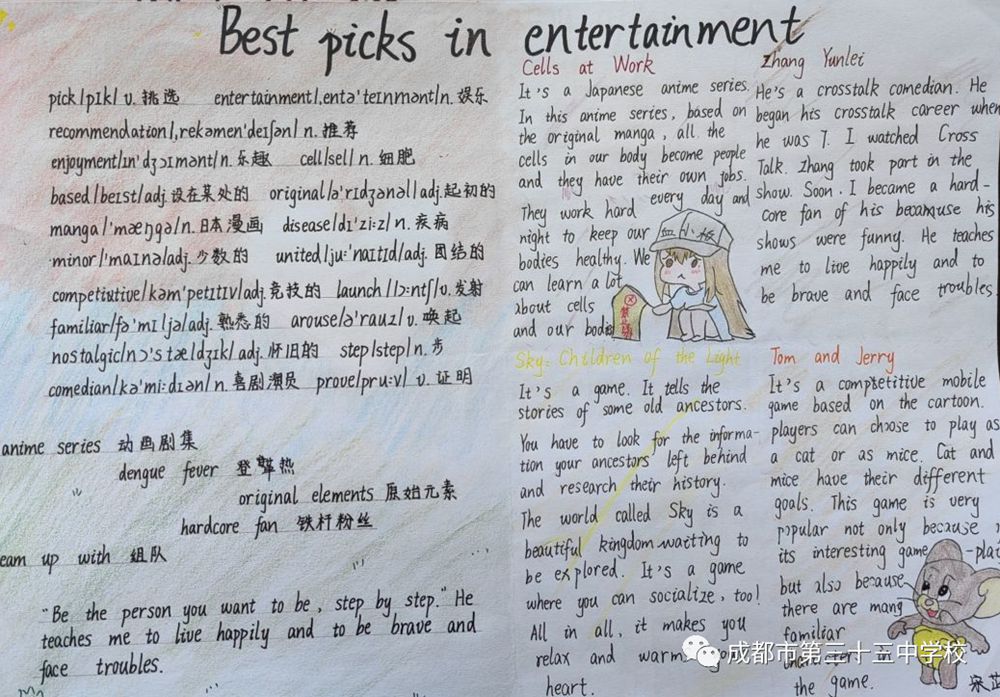 Best picks in entertainment
pick/pɪk/ v. 挑选 entertainment/,entə'teɪnmənt/n. 娱乐
recommendation/,rekəmen'deɪʃən/ n. 推荐
enjoyment/ɪn'dʒɔɪmənt/n. 乐趣 cell/sel/ n. 细胞
based/beɪst/adj. 设在某处的 original/ə'rɪdʒənəl/adj.起初的
manga/'mæŋgə/n. 日本漫画 disease/dɪ'zi:z/ n. 疾病
minor/'maɪnə/adj. 少数的 united/ju:'naɪtɪd/adj. 团结的
competiutive/kəm'petɪtɪv/adj. 竞技的 launch/lɔ:ntʃ/v. 发射
familiar/fə'mɪljə/adj. 熟悉的 arouse/ə'rauz/ v. 唤起
nostalgic/nɔ'stældʒɪk/adj. 怀旧的 step/step/n. 步
comedian/kə'mi:dɪən/ n. 喜剧演员 prove/pru:v/ v. 证明
anime series 动画剧集
dengue fever 登革热
original elements 原始元素
hardcore fan 铁杆粉丝
eam up with 组队
"Be the person you want to be, step by step." He
teaches me to live happily and to be brave and
face troubles.
Cells at Work
It's a Japanese anime series.
In this anime series, based on
the original manga, all the
cells in our body become people
and they have their own jobs.
They work hard every day and
night to keep our
bodies healthy. We
can learn a lot
about cells
and our bodie
血小板
Zhang Yunlei
He's a crosstalk comedian. He
began his crosstalk career when
he was 7. I watched Cross
Talk. Zhang took part in the
show. Soon. I became a hard-
core fan of his becamuse his
shows were funny. He teaches
me to live happily and to
be brave and face troubles
Sky: Children of the Light
It's a game. It tells the
stories of some old ancestors.
You have to look for the informa-
tion your ancestors left behind
and research their history.
The world called Sky is a
beautiful kingdom waiting to
be explored. It's a game
where you can socialize, too!
All in all, it makes you
relax and warms
heart.
Tom and Jerry
It's a competitive mobile
game based on the cartoon.
players can choose to play as
a cat or as mice. Cat and
mice have their different
goals. This game is very
popular not only because
its interesting game-pla
but also because
there are many
familiar
the game.
成都市第三十三中学校